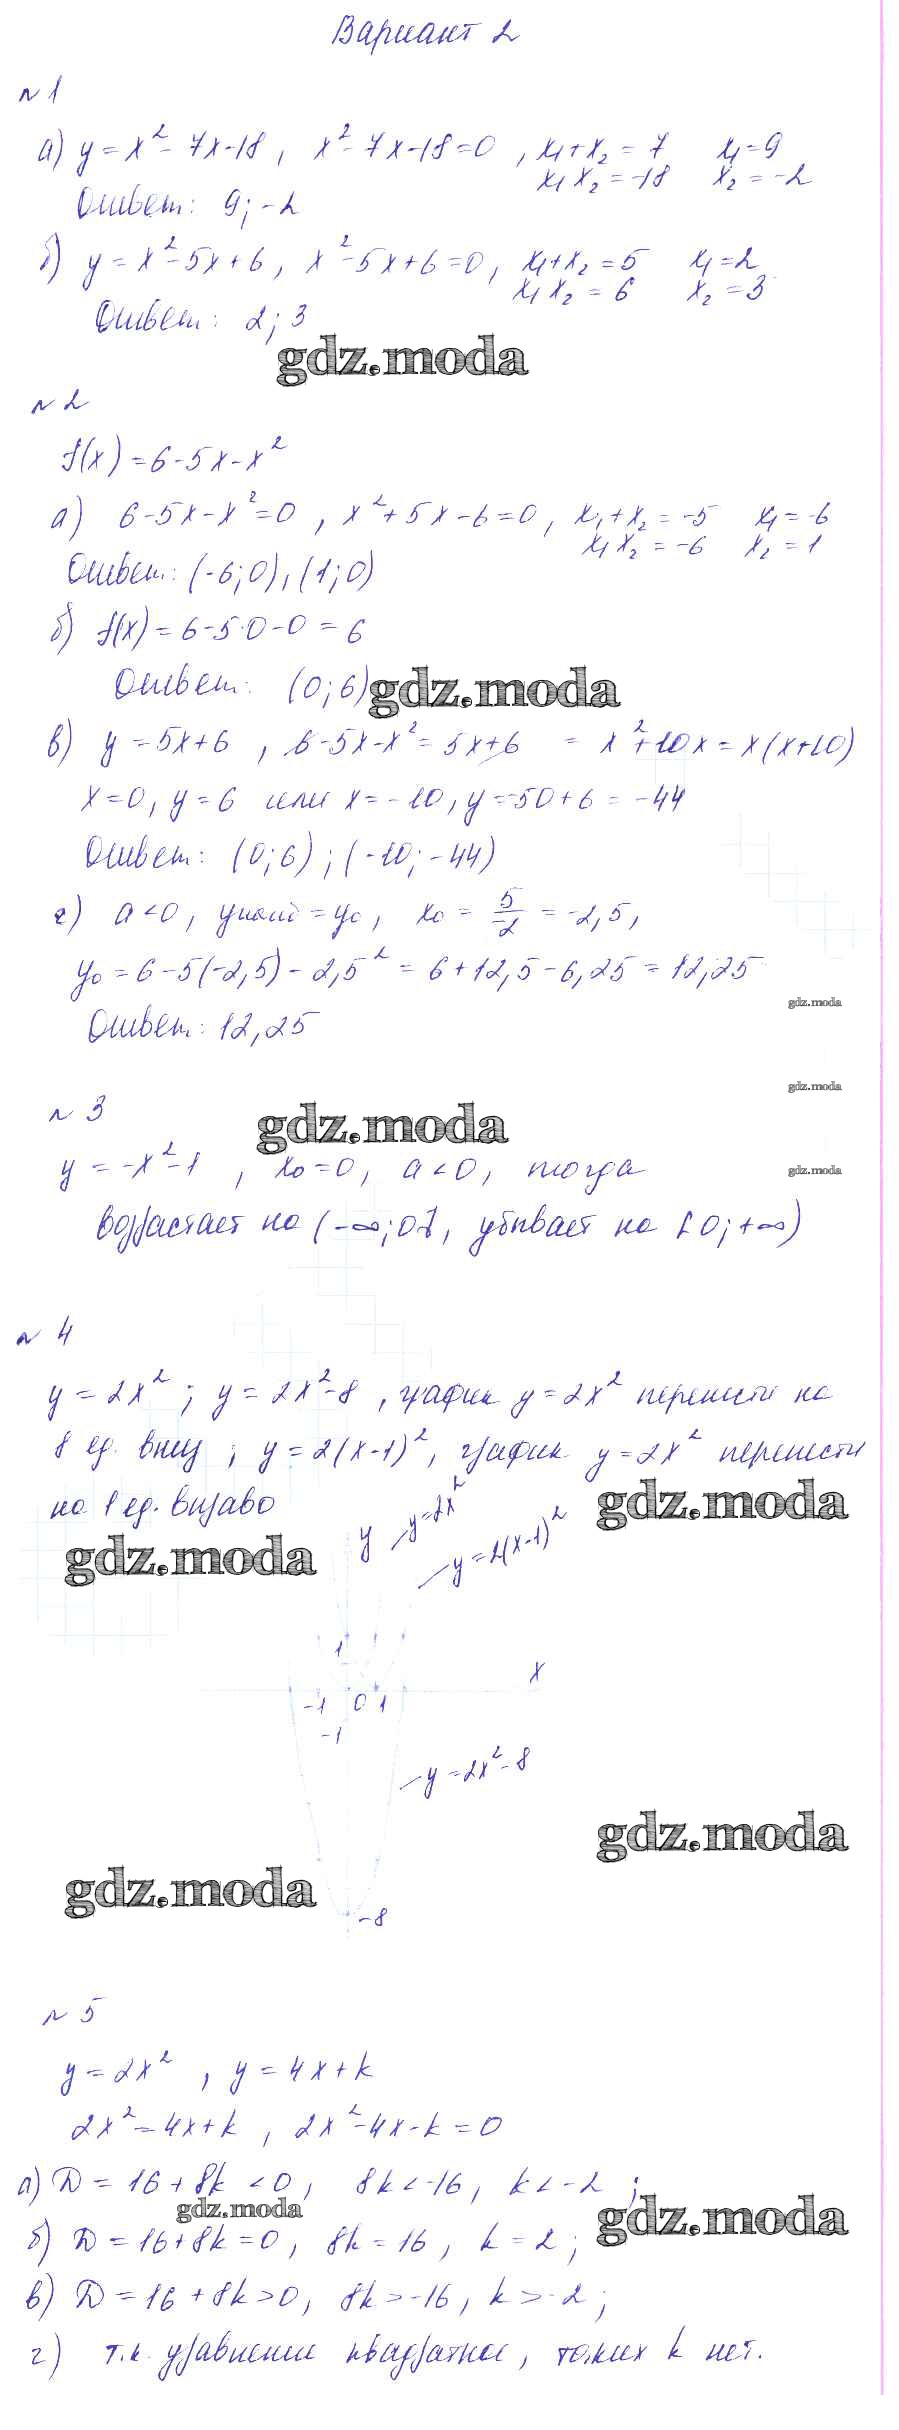 Вариант 2
№ 1
а) y = x² - 7x - 18 , x² - 7x - 18 = 0 , x₁ + x₂ = 7 x₁ = 9
x₁ x₂ = -18 x₂ = -2
Ответ: 9; -2
б) y = x² - 5x + 6 , x² - 5x + 6 = 0, x₁ + x₂ = 5 x₁ = 2
x₁ x₂ = 6 x₂ = 3
Ответ: 2; 3
gdz.moda
№ 2
f(x) = 6 - 5x - x²
а) 6 - 5x - x² = 0 , x² + 5x - 6 = 0, x₁ + x₂ = -5 x₁ = -6
x₁ x₂ = -6 x₂ = 1
Ответ: (-6; 0), (1; 0)
б) f(x) = 6 - 5·0 - 0 = 6
Ответ: (0; 6)
gdz.moda
в) y = 5x + 6 , 6 - 5x - x² = 5x + 6 = x² + 10x = x(x + 10)
x = 0, y = 6 или x = -10, y = -50 + 6 = -44
Ответ: (0; 6) ; (-10; -44)
г) a < 0, yнаиб = y₀, x₀ = 5/-2 = -2,5,
y₀ = 6 - 5(-2,5) - 2,5² = 6 + 12,5 - 6,25 = 12,25
gdz.moda
Ответ: 12,25
gdz.moda
№ 3
gdz.moda
y = -x² - 1 , x₀ = 0, a < 0, тогда
gdz.moda
возрастает на (-∞; 0], убывает на [0; +∞)
№ 4
y = 2x² ; y = 2x² - 8 , график y = 2x² перенести на
8 ед. вниз ; y = 2(x - 1)², график y = 2x² перенести
на 1 ед. вправо
gdz.moda
gdz.moda
y y = 2x²
y = 2(x - 1)²
1
x
-1 0 1
-1
y = 2x² - 8
gdz.moda
gdz.moda
-8
№ 5
y = 2x² , y = 4x + k
2x² = 4x + k , 2x² - 4x - k = 0
а) D = 16 + 8k < 0, 8k < -16, k < -2 ;
gdz.moda
gdz.moda
б) D = 16 + 8k = 0, 8k = 16, k = 2 ;
в) D = 16 + 8k > 0, 8k > -16, k > -2 ;
г) т.к. уравнение квадратное, таких k нет.